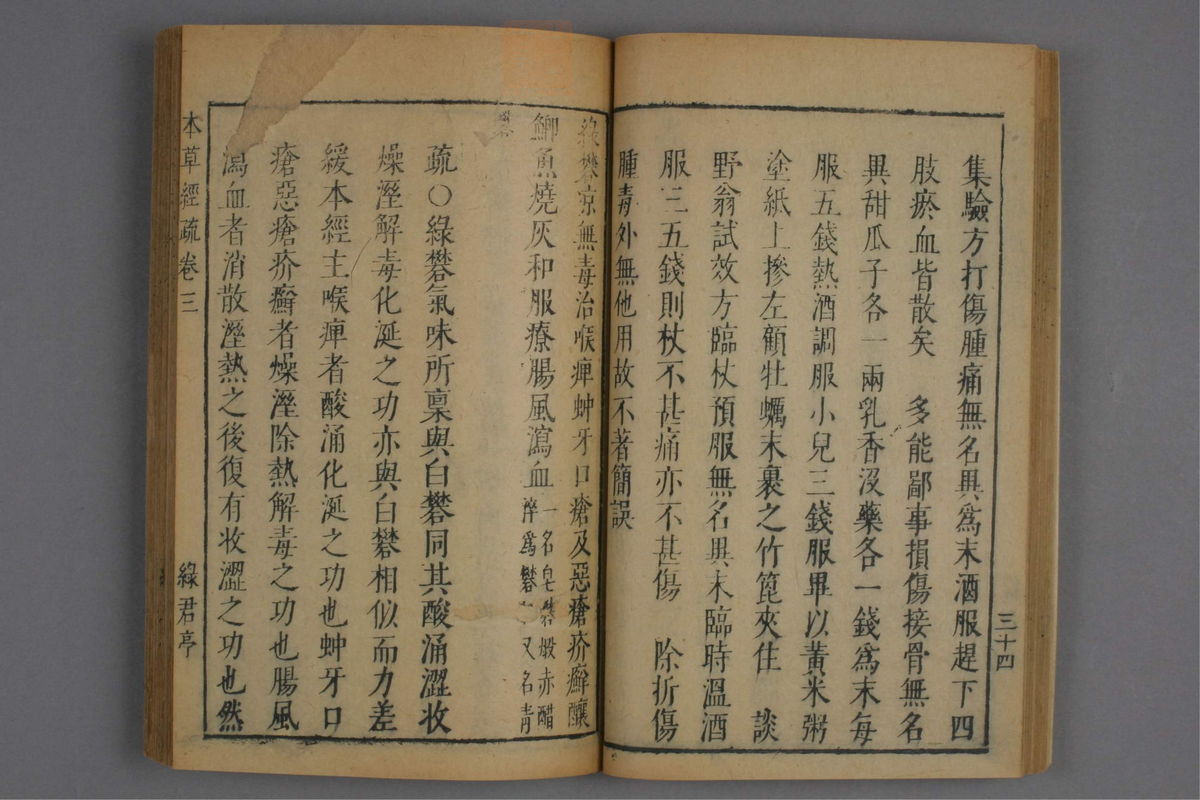 集驗方打傷腫痛無名異為末酒服趕下四
肢瘀血皆散矣 多能鄙事損傷接骨無名
異甜瓜子各一兩乳香沒藥各一錢為末每
服五錢熱酒調服小兒三錢服畢以黃米粥
塗紙上摻左顧牡蠣末裹之竹篦夾住 談
野翁試效方臨杖預服無名異末臨時溫酒
服三五錢則杖不甚痛亦不甚傷 除折傷
腫毒外無他用故不著簡誤
三十四
綠礬涼無毒治喉痺蚛牙口瘡及惡瘡疥癬釀
鯽魚燒灰和服療腸風瀉血
一名皂礬煅赤醋
淬為礬 又名青
礬
疏○綠礬氣味所稟與白礬同其酸涌澀收
燥溼解毒化涎之功亦與白礬相似而力差
緩本經主喉痺者酸涌化涎之功也蚛牙口
瘡惡瘡疥癬者燥溼除熱解毒之功也腸風
瀉血者消散溼熱之後復有收澀之功也然
本草經疏卷三
綠君亭